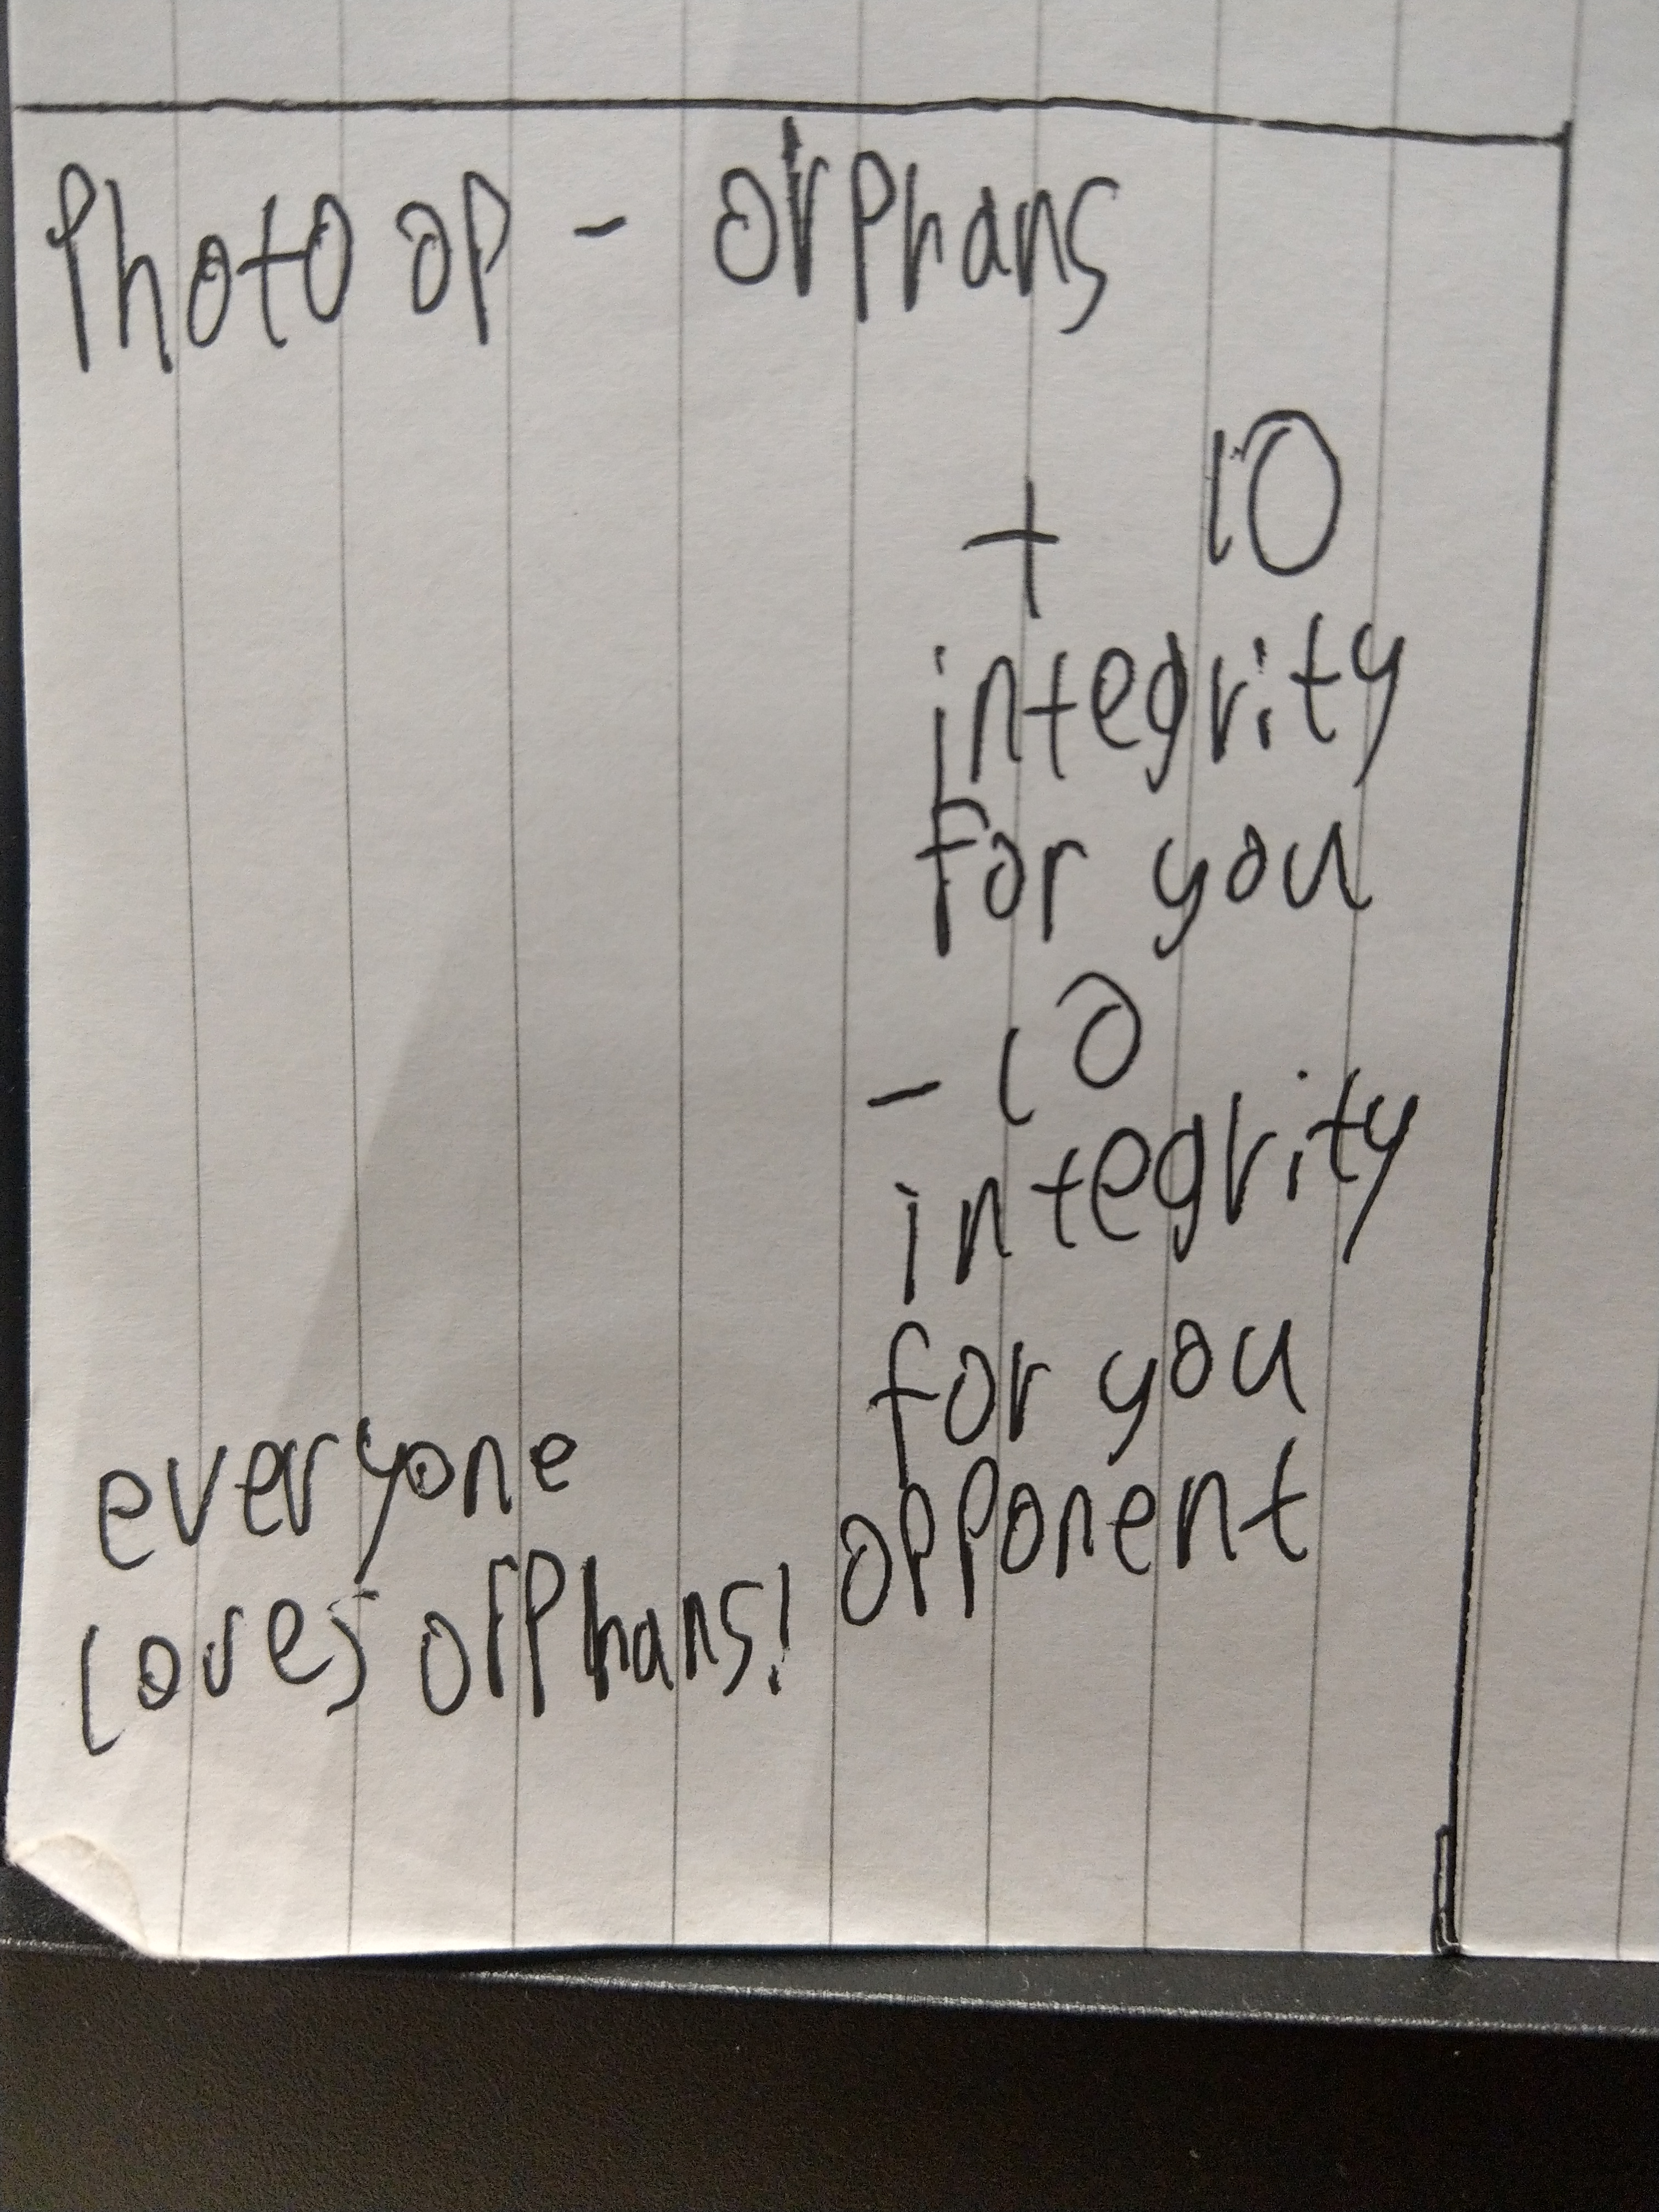 Photo op - orphans
+ 10
integrity
for you
- 10
integrity
for you
opponent
everyone
loves orphans!